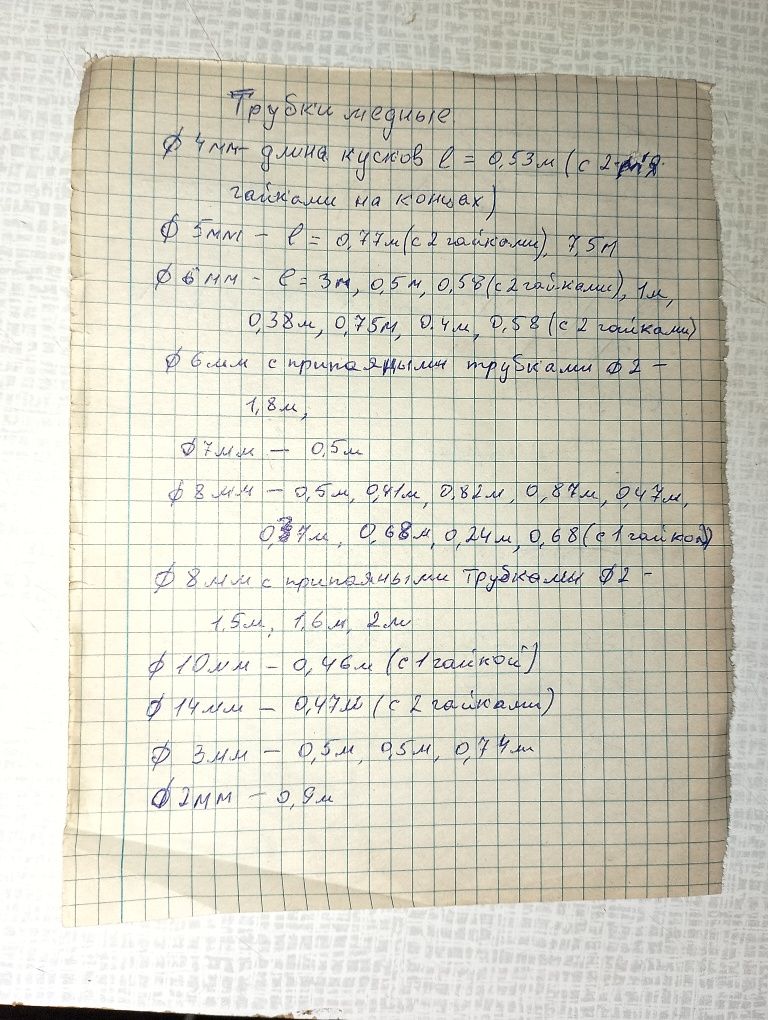 Трубки медные
φ 4мм - длина кусков l = 0,53м (с 2-мя
гайками на концах)
φ 5мм - l = 0,77м (с 2 гайками), 7,5м
φ 6мм - l = 3м, 0,5м, 0,58 (с 2 гайками), 1м,
0,38м, 0,75м, 0.4м, 0,58 (с 2 гайками)
φ 6мм с припаяными трубками φ 2 -
1,8м,
φ 7мм - 0,5м
φ 8мм - 0,5м, 0,41м, 0,82м, 0,87м, 0,47м,
0,37м, 0,68м, 0,24м, 0,68 (с 1 гайкой)
φ 8мм с припаяными трубками φ 2 -
1,5м, 1,6м, 2м
φ 10мм - 0,46м (с 1 гайкой)
φ 14мм - 0,47м (с 2 гайками)
φ 3мм - 0,5м, 0,5м, 0,74м
φ 2мм - 0,9м